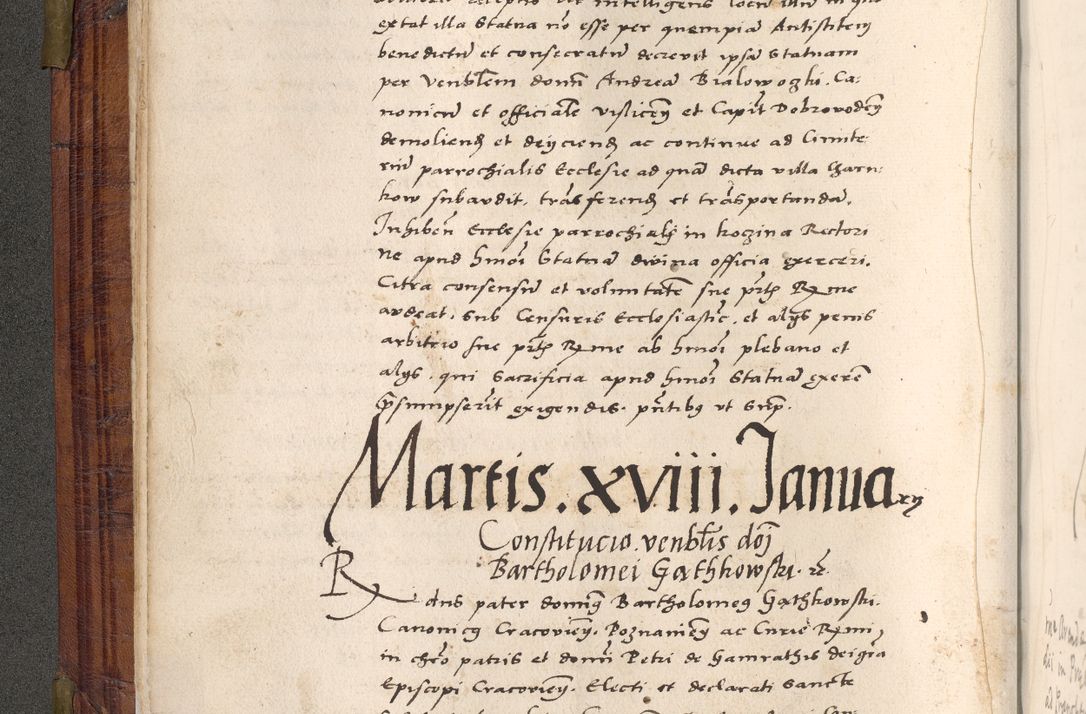 extat illa Statua nō esse per quempiā Antistitem
benedictū et consecratū decrevit ipsā Statuam
per Venblem domī Andreā Bialowoski. Ca:
nonicū et officiale visliceñ et Capit Dobrovodeñ
demoliend et deijciend ac continue ad Cimite:
riū parrochialis Ecclesie ad quā dicta villa Charn:
kow subaudit. trāsferend et trāsportandā.
Inhibeñ Ecclesie parrochialis in koczina Rectori
ne apud hmōi Statuā divina officia exerceri.
Citra consensū et voluntatē sue prtis Rme
audeat. sub Censuris Ecclesiastic. et alijs penis
arbitrio sue prtis Rme ab hmōi plebano et
alijs. qui Sacrificia apud hmōi Statuā exerē
psumpserit exigendis. pntibus ut sup.
Martis. xviii. Januarij
Constitucio. venblis doj
Bartholomei Gathkowski. rr.
Rdus pater dominus Bartholomeus Gathkowski.
Canonicus Cracovieñ. Poznanieñ ac Curie Rmi
in chro patris et domī Petri de Gamrathis dei gīa
Episcopi Cracovieñ. Electi et declarati Sancte